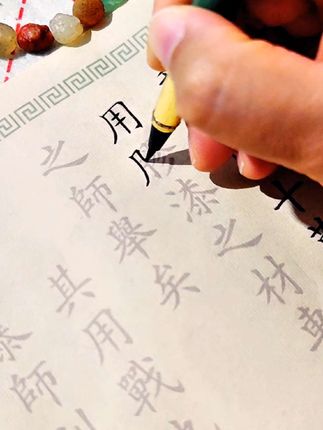 十
用漆之材車
之師舉矣
其用戰
師